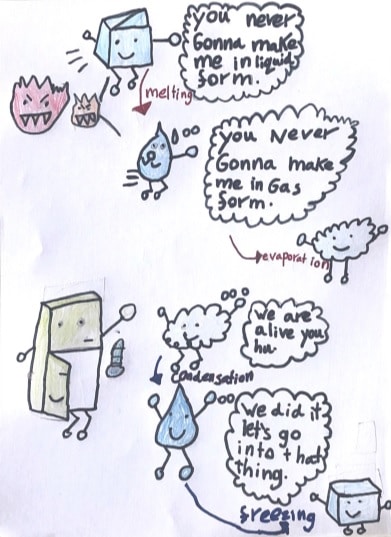 you never
Gonna make
me in liquid
form.
melting
you Never
Gonna make
me in Gas
form.
evaporation
we are
alive you
hu.
Condensation
We did it
let's go
into that
thing.
freezing